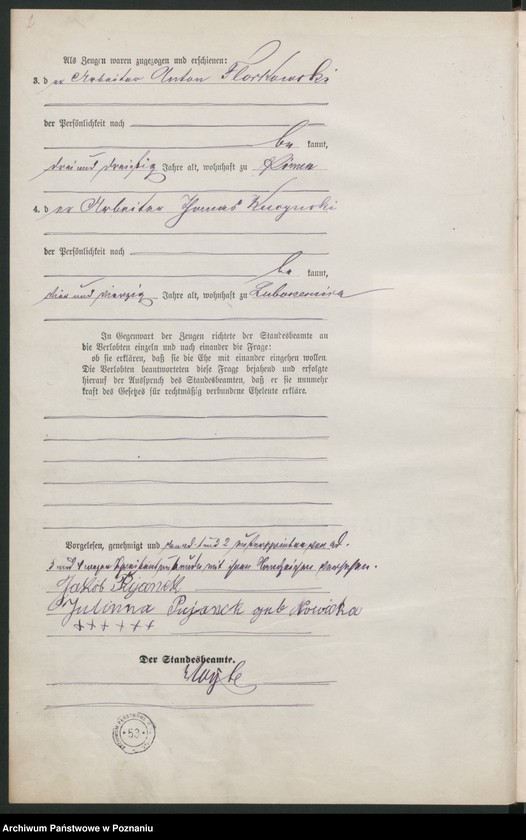 Als Zeugen waren zugezogen und erschienen:
3. d er Arbeiter Anton Florkowski
der Persönlichkeit nach
be kannt,
drei und dreißig Jahre alt, wohnhaft zu
4. d er Arbeiter Thomas Kuczynski
der Persönlichkeit nach
be kannt,
vier und vierzig Jahre alt, wohnhaft zu
In Gegenwart der Zeugen richtete der Standesbeamte an
die Verlobten einzeln und nach einander die Frage:
ob sie erklären, daß sie die Ehe mit einander eingehen wollen.
Die Verlobten beantworteten diese Frage bejahend und erfolgte
hierauf der Ausspruch des Standesbeamten, daß er sie nunmehr
kraft des Gesetzes für rechtmäßig verbundene Eheleute erkläre.
Vorgelesen, genehmigt und von ad 1 und 2 unterschrieben von ad.
3 und 4 wegen Schreibensunkunde mit ihren Handzeichen versehen.
Jakob
Julianna Pujanek geb Nowicka
+ + + + + +
Der Standesbeamte.
53
Archiwum Państwowe w Poznaniu